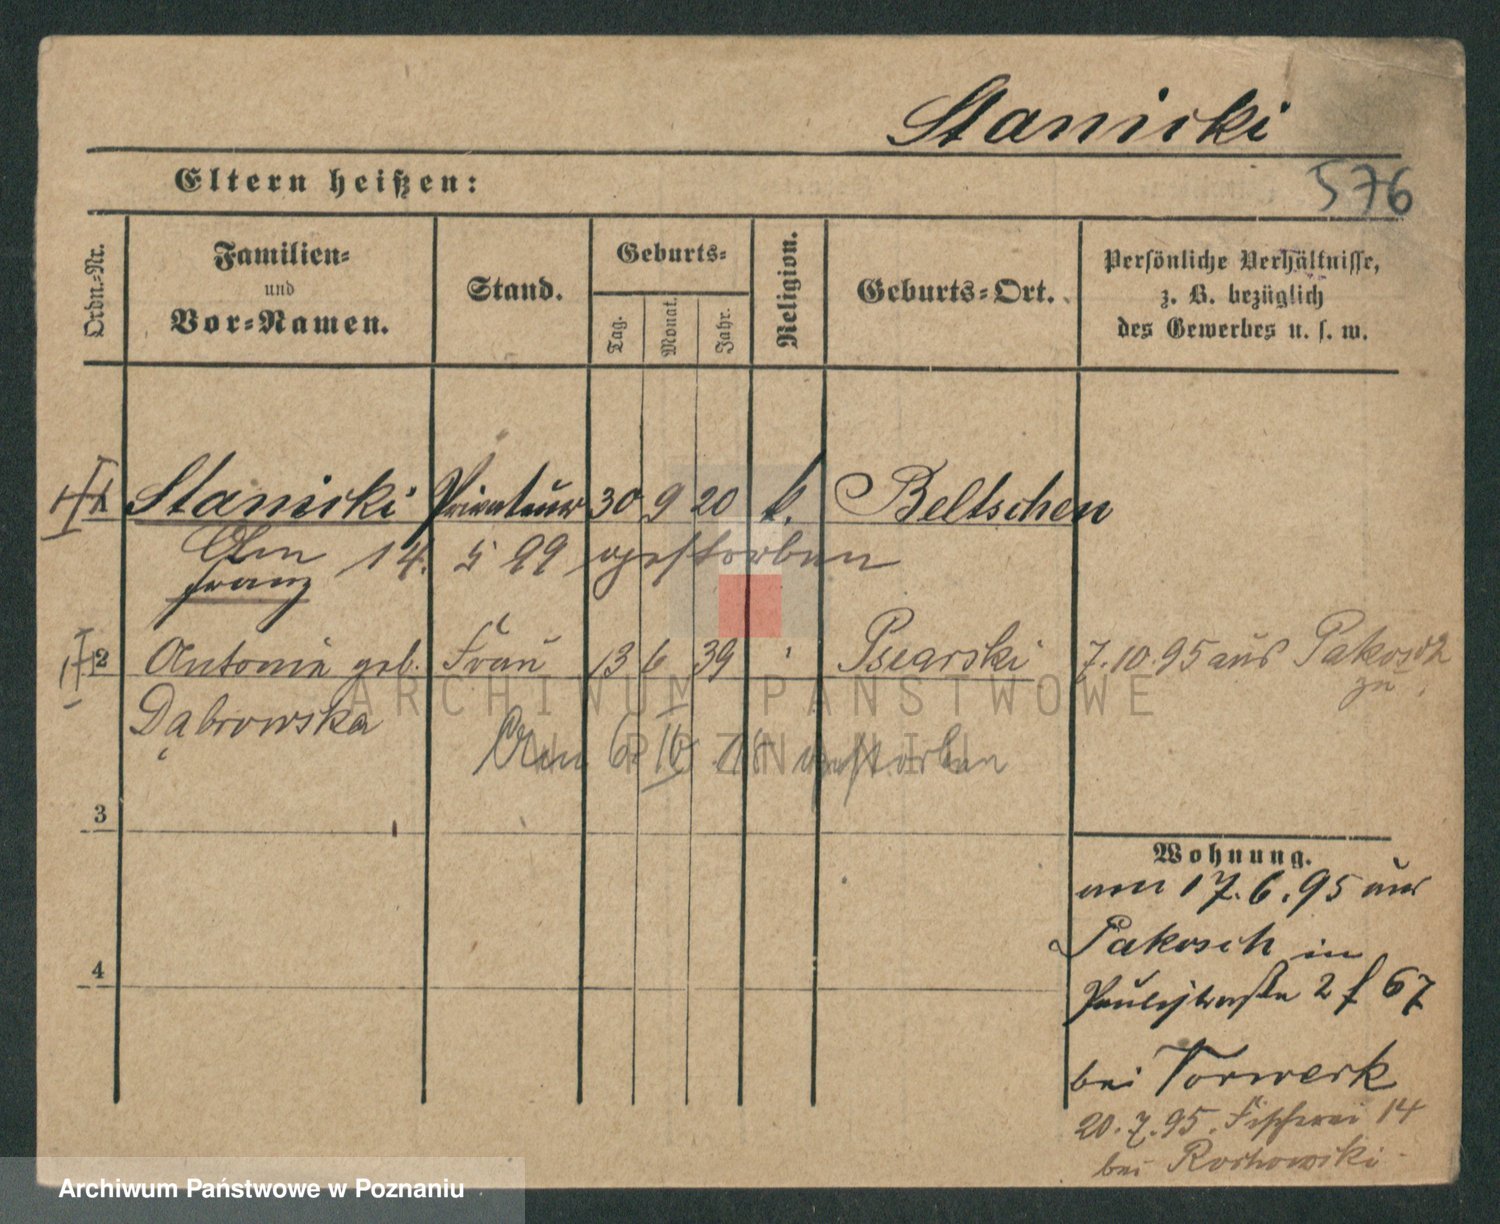 Stanicki
576
Eltern heißen:
Ordn.-Nr.
Familien-
und
Vor-Namen.
Stand.
Geburts-
Tag.
Monat.
Jahr.
Religion.
Geburts-Ort.
Persönliche Verhältnisse,
z. B. bezüglich
des Gewerbes u. s. w.
1 Stanicki Privateur 30 9 20 k. Beltschen
Am 14. 5 99 gestorben
Franz
2 Antonie geb. Frau 13 6 39 Psearski 7.10.95 aus Pakosch
zu
Dąbrowska
Am 6. 10 18 gestorben
3
4
Wohnung.
am 17.6.95 aus
Pakosch in
Paulistraße 2 f 67
bei Vorwerk
20.7.95. Fischerei 14
bei Rochowski
ARCHIWUM PAŃSTWOWE
W POZNANIU
Archiwum Państwowe w Poznaniu